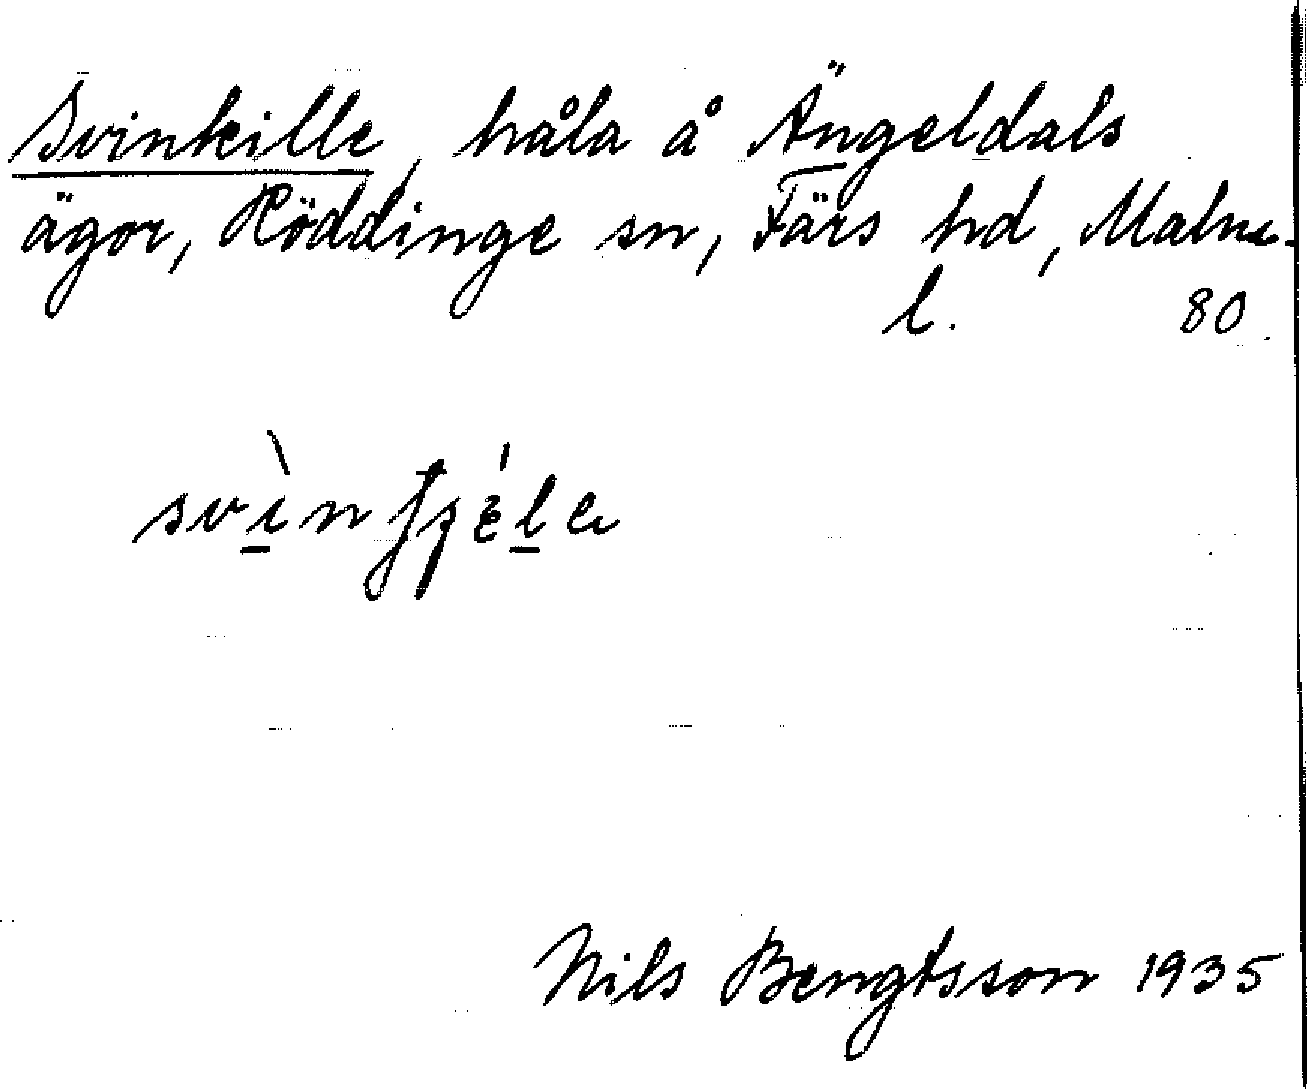 Svinkille, håla å Ängeldals
ägor, Röddinge sn, Färs hd, Malm.
l. 80
Nils Bengtsson 1935